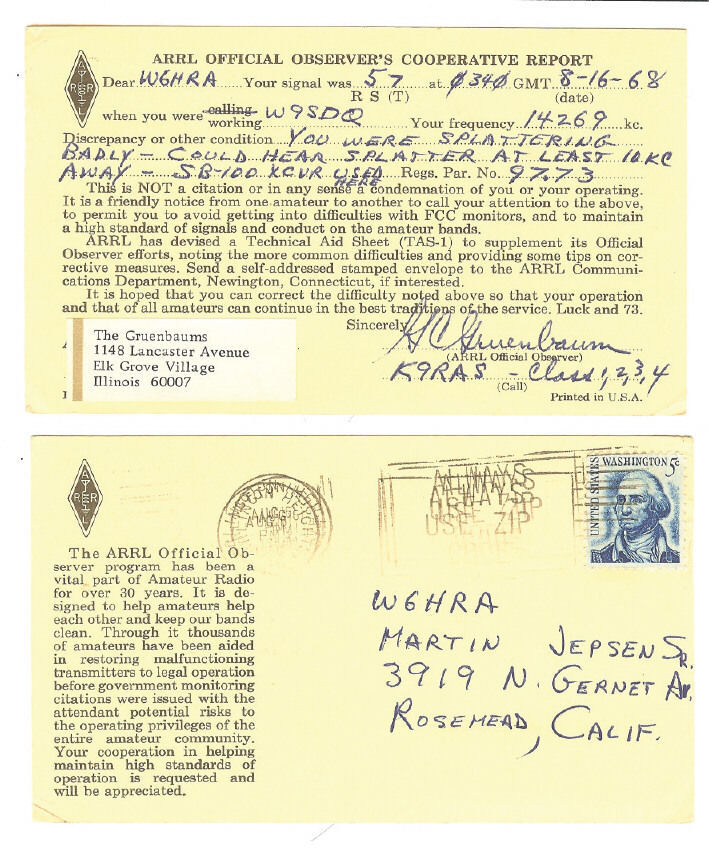 ARRL OFFICIAL OBSERVER'S COOPERATIVE REPORT
Dear W6HRA Your signal was 57 at Ø34Ø GMT 8-16-68
R S (T) (date)
when you were calling W9SDQ Your frequency 14269 kc.
working
Discrepancy or other condition YOU WERE SPLATTERING
BADLY - COULD HEAR SPLATTER AT LEAST 10 KC
AWAY - SB-100 XCVR USED Regs. Par. No. 97.73
HERE
This is NOT a citation or in any sense a condemnation of you or your operating.
It is a friendly notice from one amateur to another to call your attention to the above,
to permit you to avoid getting into difficulties with FCC monitors, and to maintain
a high standard of signals and conduct on the amateur bands.
ARRL has devised a Technical Aid Sheet (TAS-1) to supplement its Official
Observer efforts, noting the more common difficulties and providing some tips on cor-
rective measures. Send a self-addressed stamped envelope to the ARRL Communi-
cations Department, Newington, Connecticut, if interested.
It is hoped that you can correct the difficulty noted above so that your operation
and that of all amateurs can continue in the best traditions of the service. Luck and 73.
Sincerely,
The Gruenbaums
1148 Lancaster Avenue
Elk Grove Village
Illinois 60007
Gruenbaum
(ARRL Official Observer)
K9RAS - Class 1, 2, 3, 4
(Call)
Printed in U.S.A.
ARRL
ALWAYS
USE ZIP
UNITED STATES
WASHINGTON 5c
The ARRL Official Ob-
server program has been a
vital part of Amateur Radio
for over 30 years. It is de-
signed to help amateurs help
each other and keep our bands
clean. Through it thousands
of amateurs have been aided
in restoring malfunctioning
transmitters to legal operation
before government monitoring
citations were issued with the
attendant potential risks to
the operating privileges of the
entire amateur community.
Your cooperation in helping
maintain high standards of
operation is requested and
will be appreciated.
W6HRA
MARTIN JEPSEN SR.
3919 N. GERNET AV.
ROSEMEAD, CALIF.